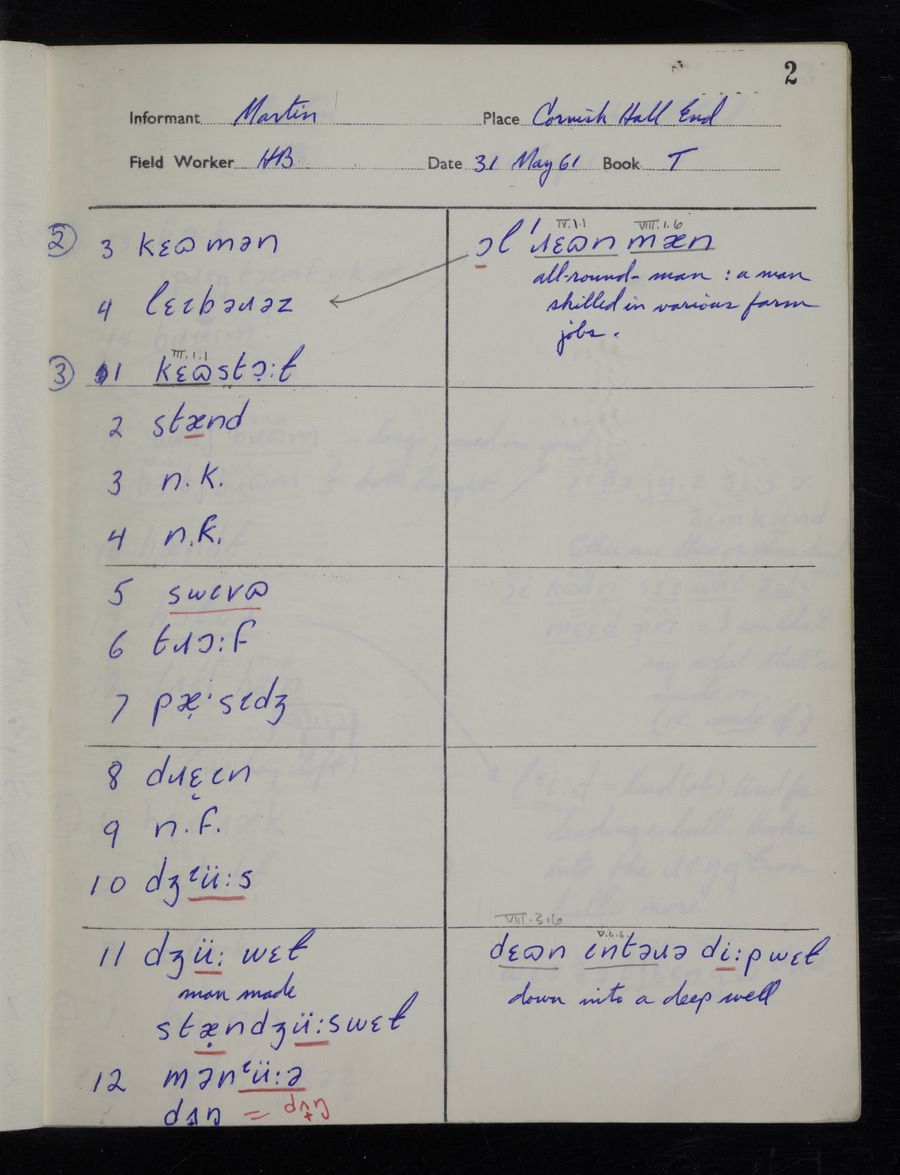 2
Informant Martin Place Cornish Hall End
Field Worker HB Date 31 May 61 Book T
② 3 kɛɷmən
4 lɛɪbəɹəz
③ 1 kɛɷstɔ̣:ɫ
III.1.1
2 stænd
3 n.k.
4 n.k.
5 swɛvɷ
6 tɹɔ:f
7 pæ̣·sɪdʒ
8 dɹɛ̣ɪn
9 n.f.
10 dʒᶦü:s
11 dʒü: wɛɫ
man made
stæ̣ndʒü:swɛɫ
12 mənᶦü:ə
IV.1.1 VIII.1.6
ɔɫ'ɹɛɷn mæn
all-round-man : a man
skilled in various farm
jobs.
VIII.3.6
V.6.6.
dɛɷn ɪntəɹə di:pwɛɫ
down into a deep well